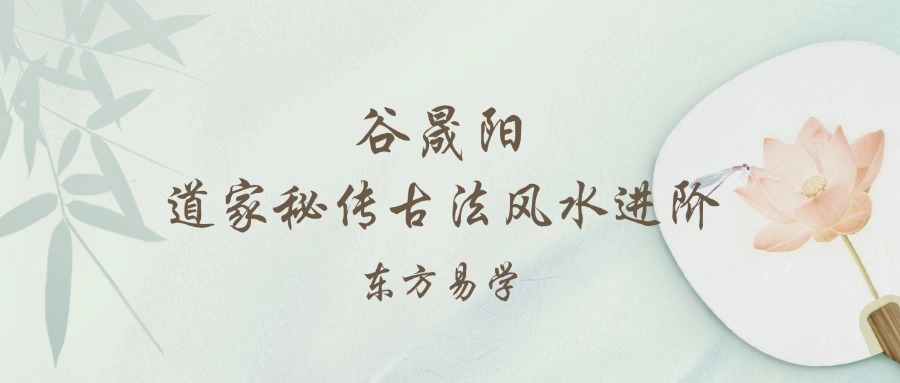 谷晟阳
道家秘传古法风水进阶
东方易学